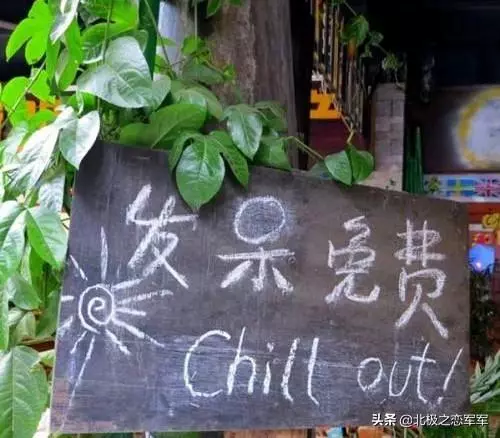 发呆免费
Chill out!
头条 @北极之恋军军